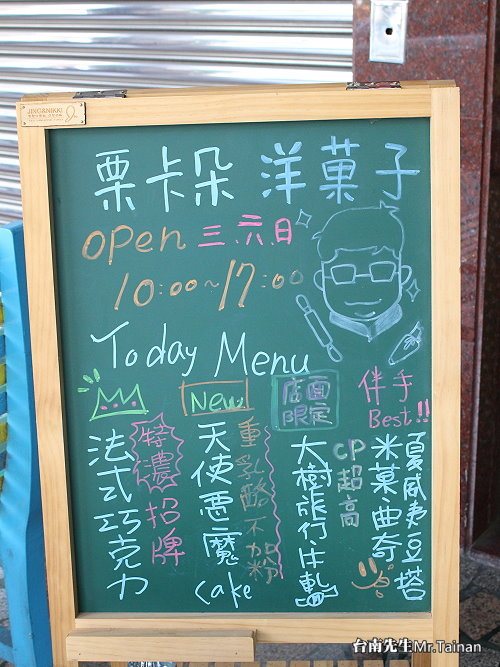 JING&NIKKI
栗卡朵 洋菓子
open 三.六.日
10:00~17:00
Today Menu
法式巧克力
特濃招牌
New
天使惡魔cake
重乳酪不加粉
店面限定
大樹旅行
CP超高
伴手Best!!
米菓曲奇
夏威夷豆塔
台南先生Mr.Tainan